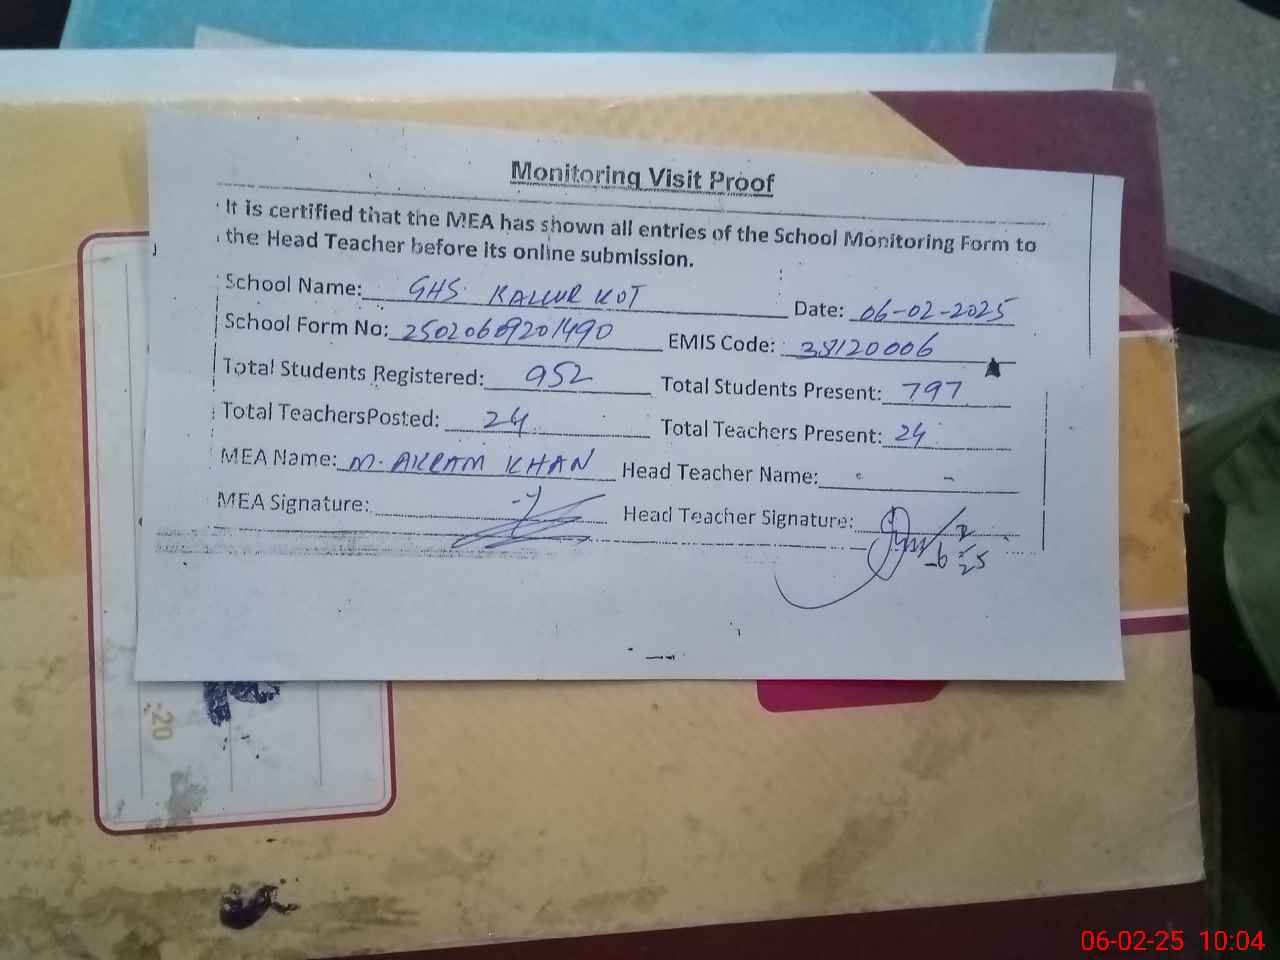 Monitoring Visit Proof
It is certified that the MEA has shown all entries of the School Monitoring Form to
the Head Teacher before its online submission.
School Name: GHS. KALLUR KOT Date: 06-02-2025
School Form No: EMIS Code: 38120006
Total Students Registered: 952 Total Students Present: 797
Total TeachersPosted: 24 Total Teachers Present: 24
MEA Name: M. AKRAM KHAN Head Teacher Name: -
MEA Signature: Head Teacher Signature:
-20
06-02-25 10:04